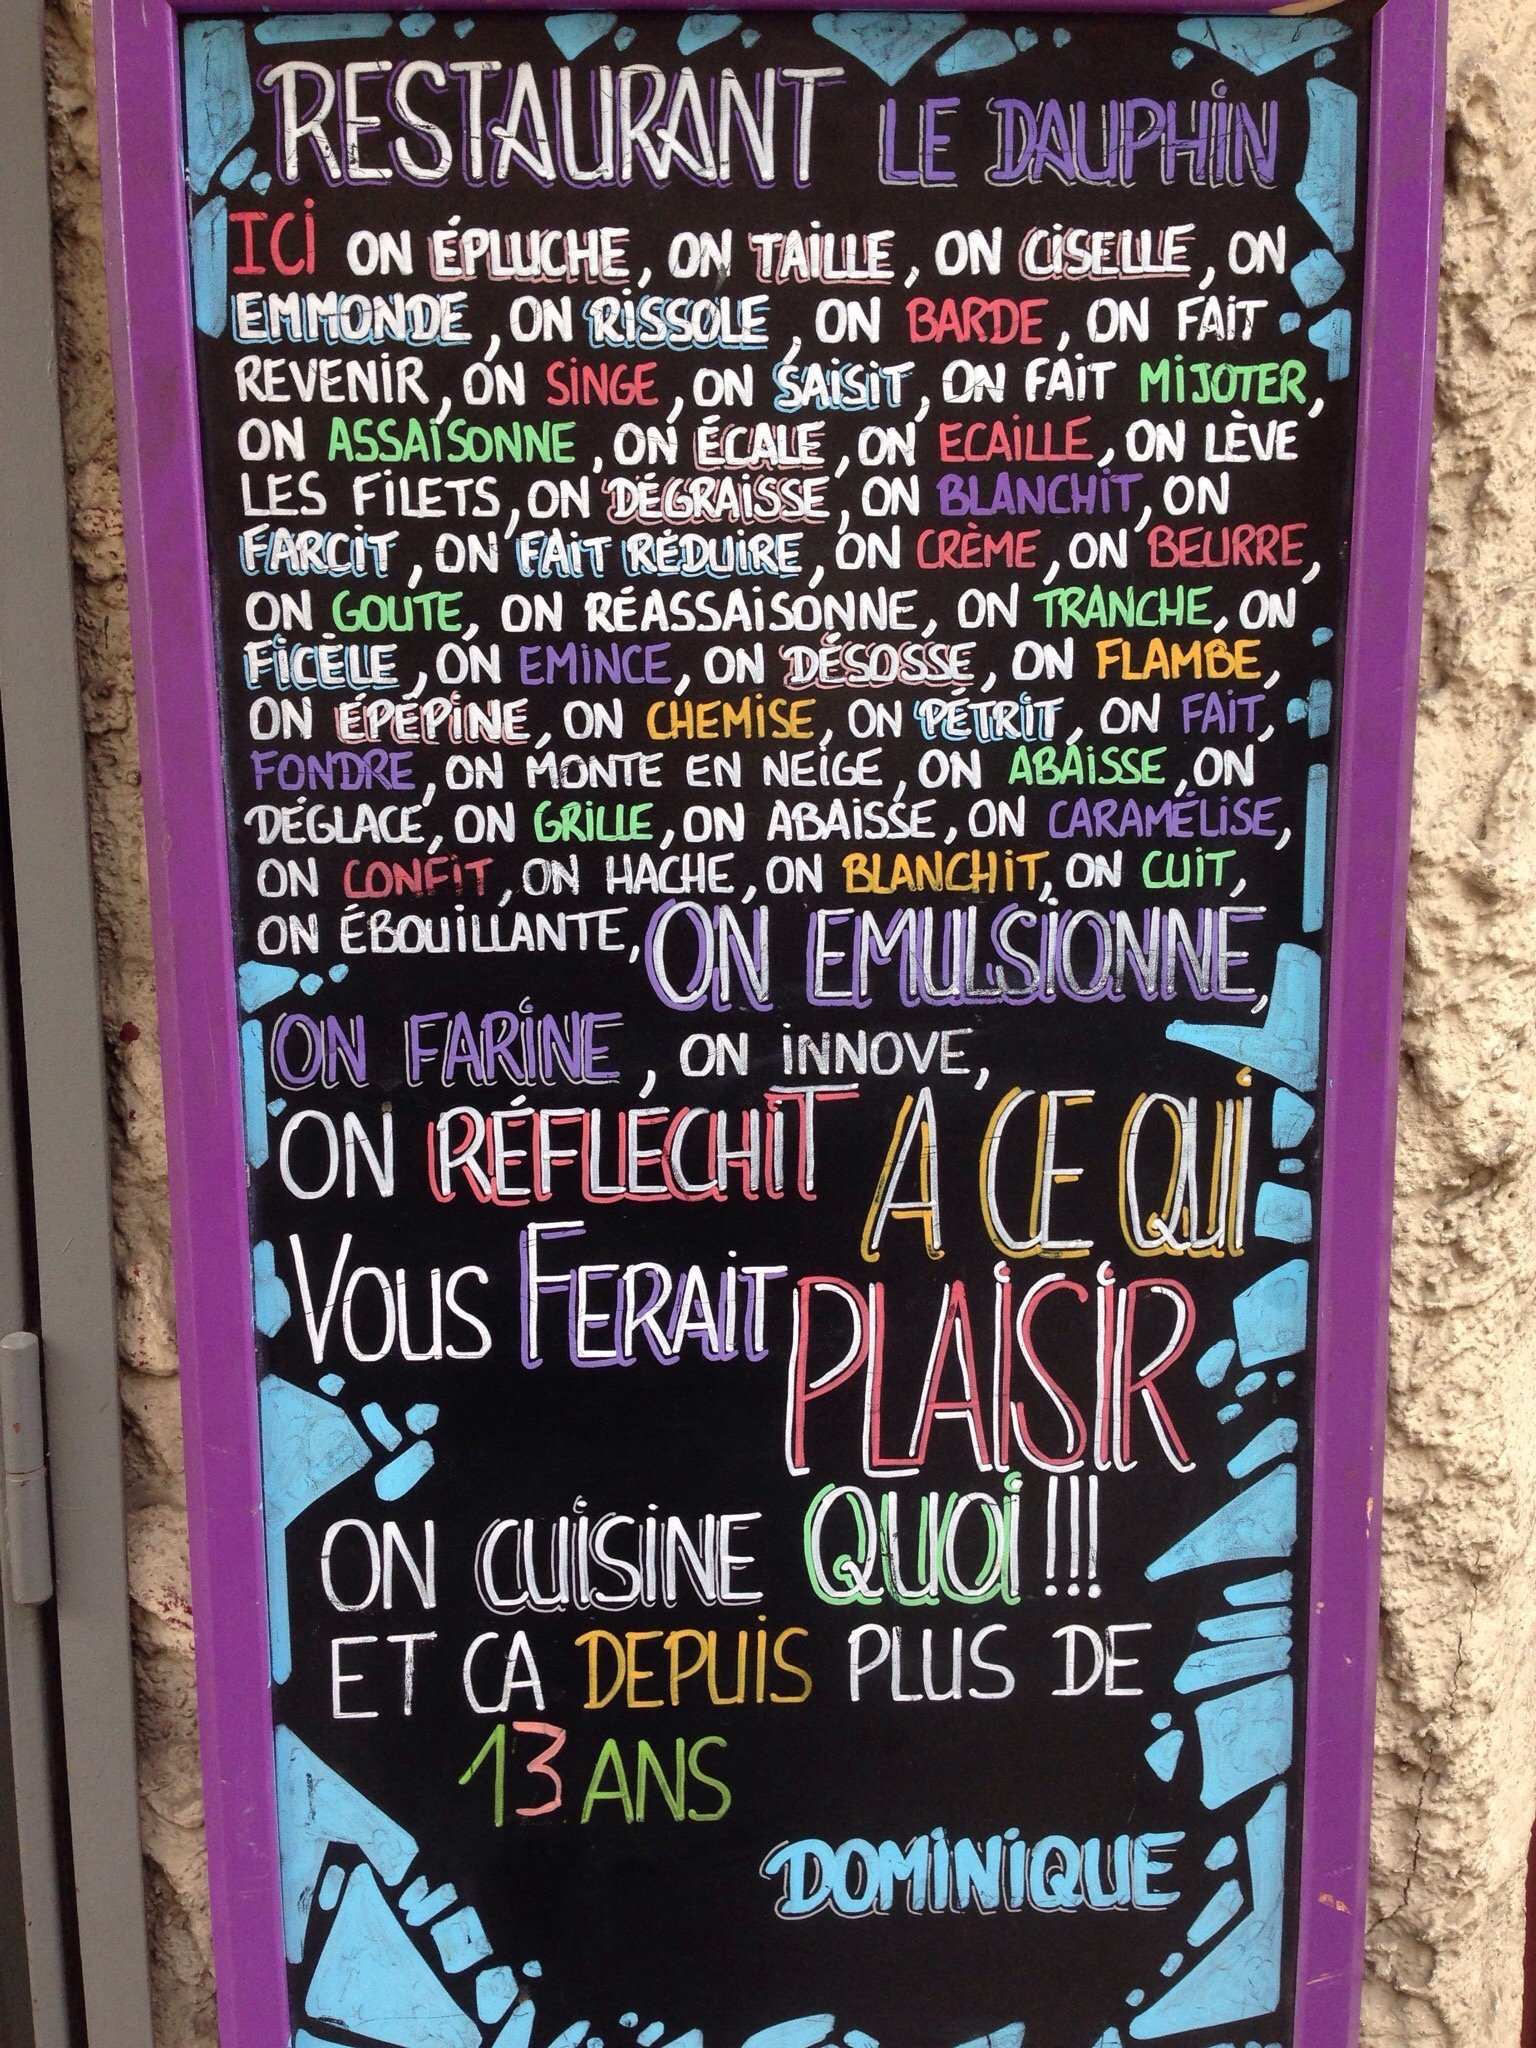 RESTAURANT LE DAUPHIN
ICI ON ÉPLUCHE, ON TAILLE, ON CISELLE, ON
EMMONDE, ON RISSOLE, ON BARDE, ON FAIT
REVENIR, ON SINGE, ON SAISIT, ON FAIT MIJOTER,
ON ASSAISONNE, ON ÉCALE, ON ECAILLE, ON LÈVE
LES FILETS, ON DÉGRAISSE, ON BLANCHIT, ON
FARCIT, ON FAIT RÉDUIRE, ON CRÈME, ON BEURRE,
ON GOUTE, ON RÉASSAISONNE, ON TRANCHE, ON
FICÈLE, ON EMINCE, ON DÉSOSSE, ON FLAMBE,
ON ÉPÉPINE, ON CHEMISE, ON PÉTRIT, ON FAIT,
FONDRE, ON MONTE EN NEIGE, ON ABAISSE, ON
DÉGLACE, ON GRILLE, ON ABAISSE, ON CARAMÉLISE,
ON CONFIT, ON HACHE, ON BLANCHIT, ON CUIT,
ON ÉBOUILLANTE, ON EMULSIONNE,
ON FARINE, ON INNOVE,
ON RÉFLÉCHIT A CE QUI
VOUS FERAIT PLAISIR
ON CUISINE QUOI !!!
ET CA DEPUIS PLUS DE
13 ANS
DOMINIQUE